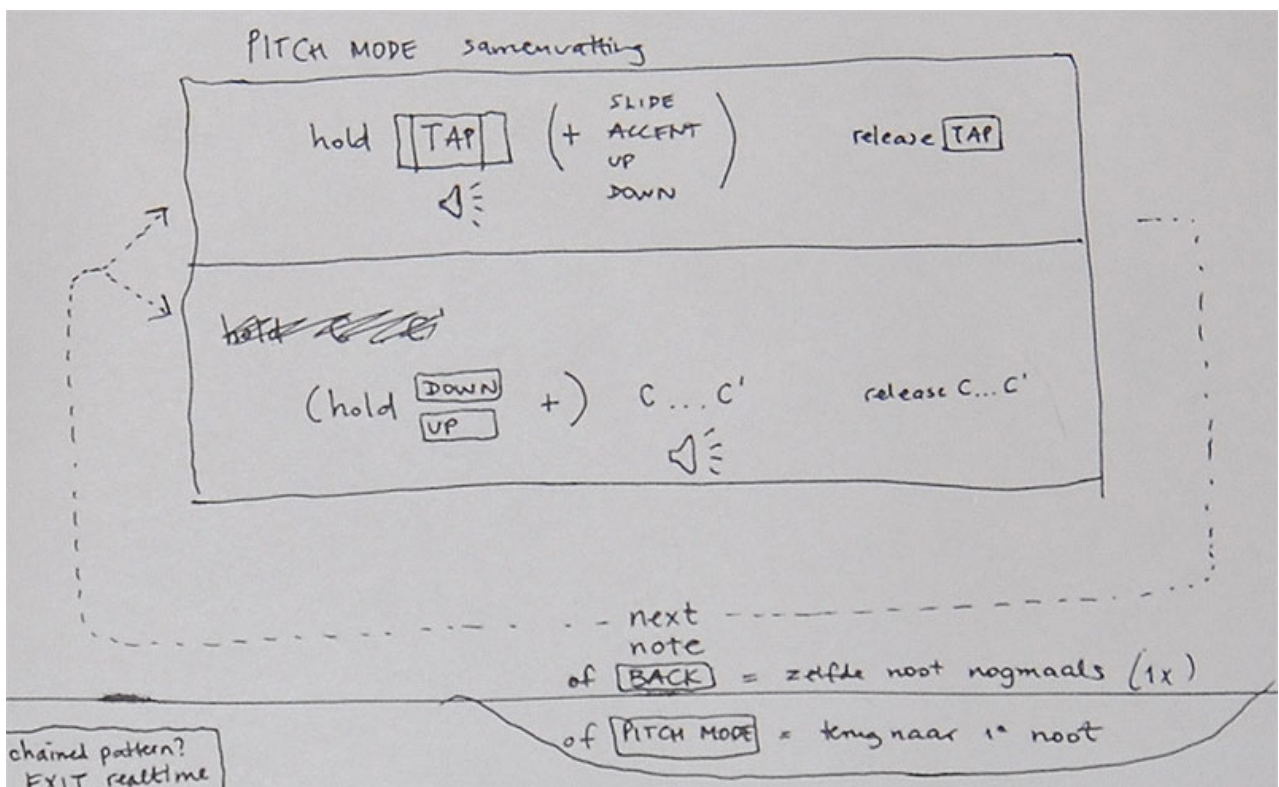 PITCH MODE samenvatting
hold TAP (+ SLIDE
ACCENT
UP
DOWN)
release TAP
(hold DOWN
UP +) C...C'
release C...C'
next
note
of BACK = zelfde noot nogmaals (1x)
of PITCH MODE = terug naar 1e noot
chained pattern?
EXIT realtime